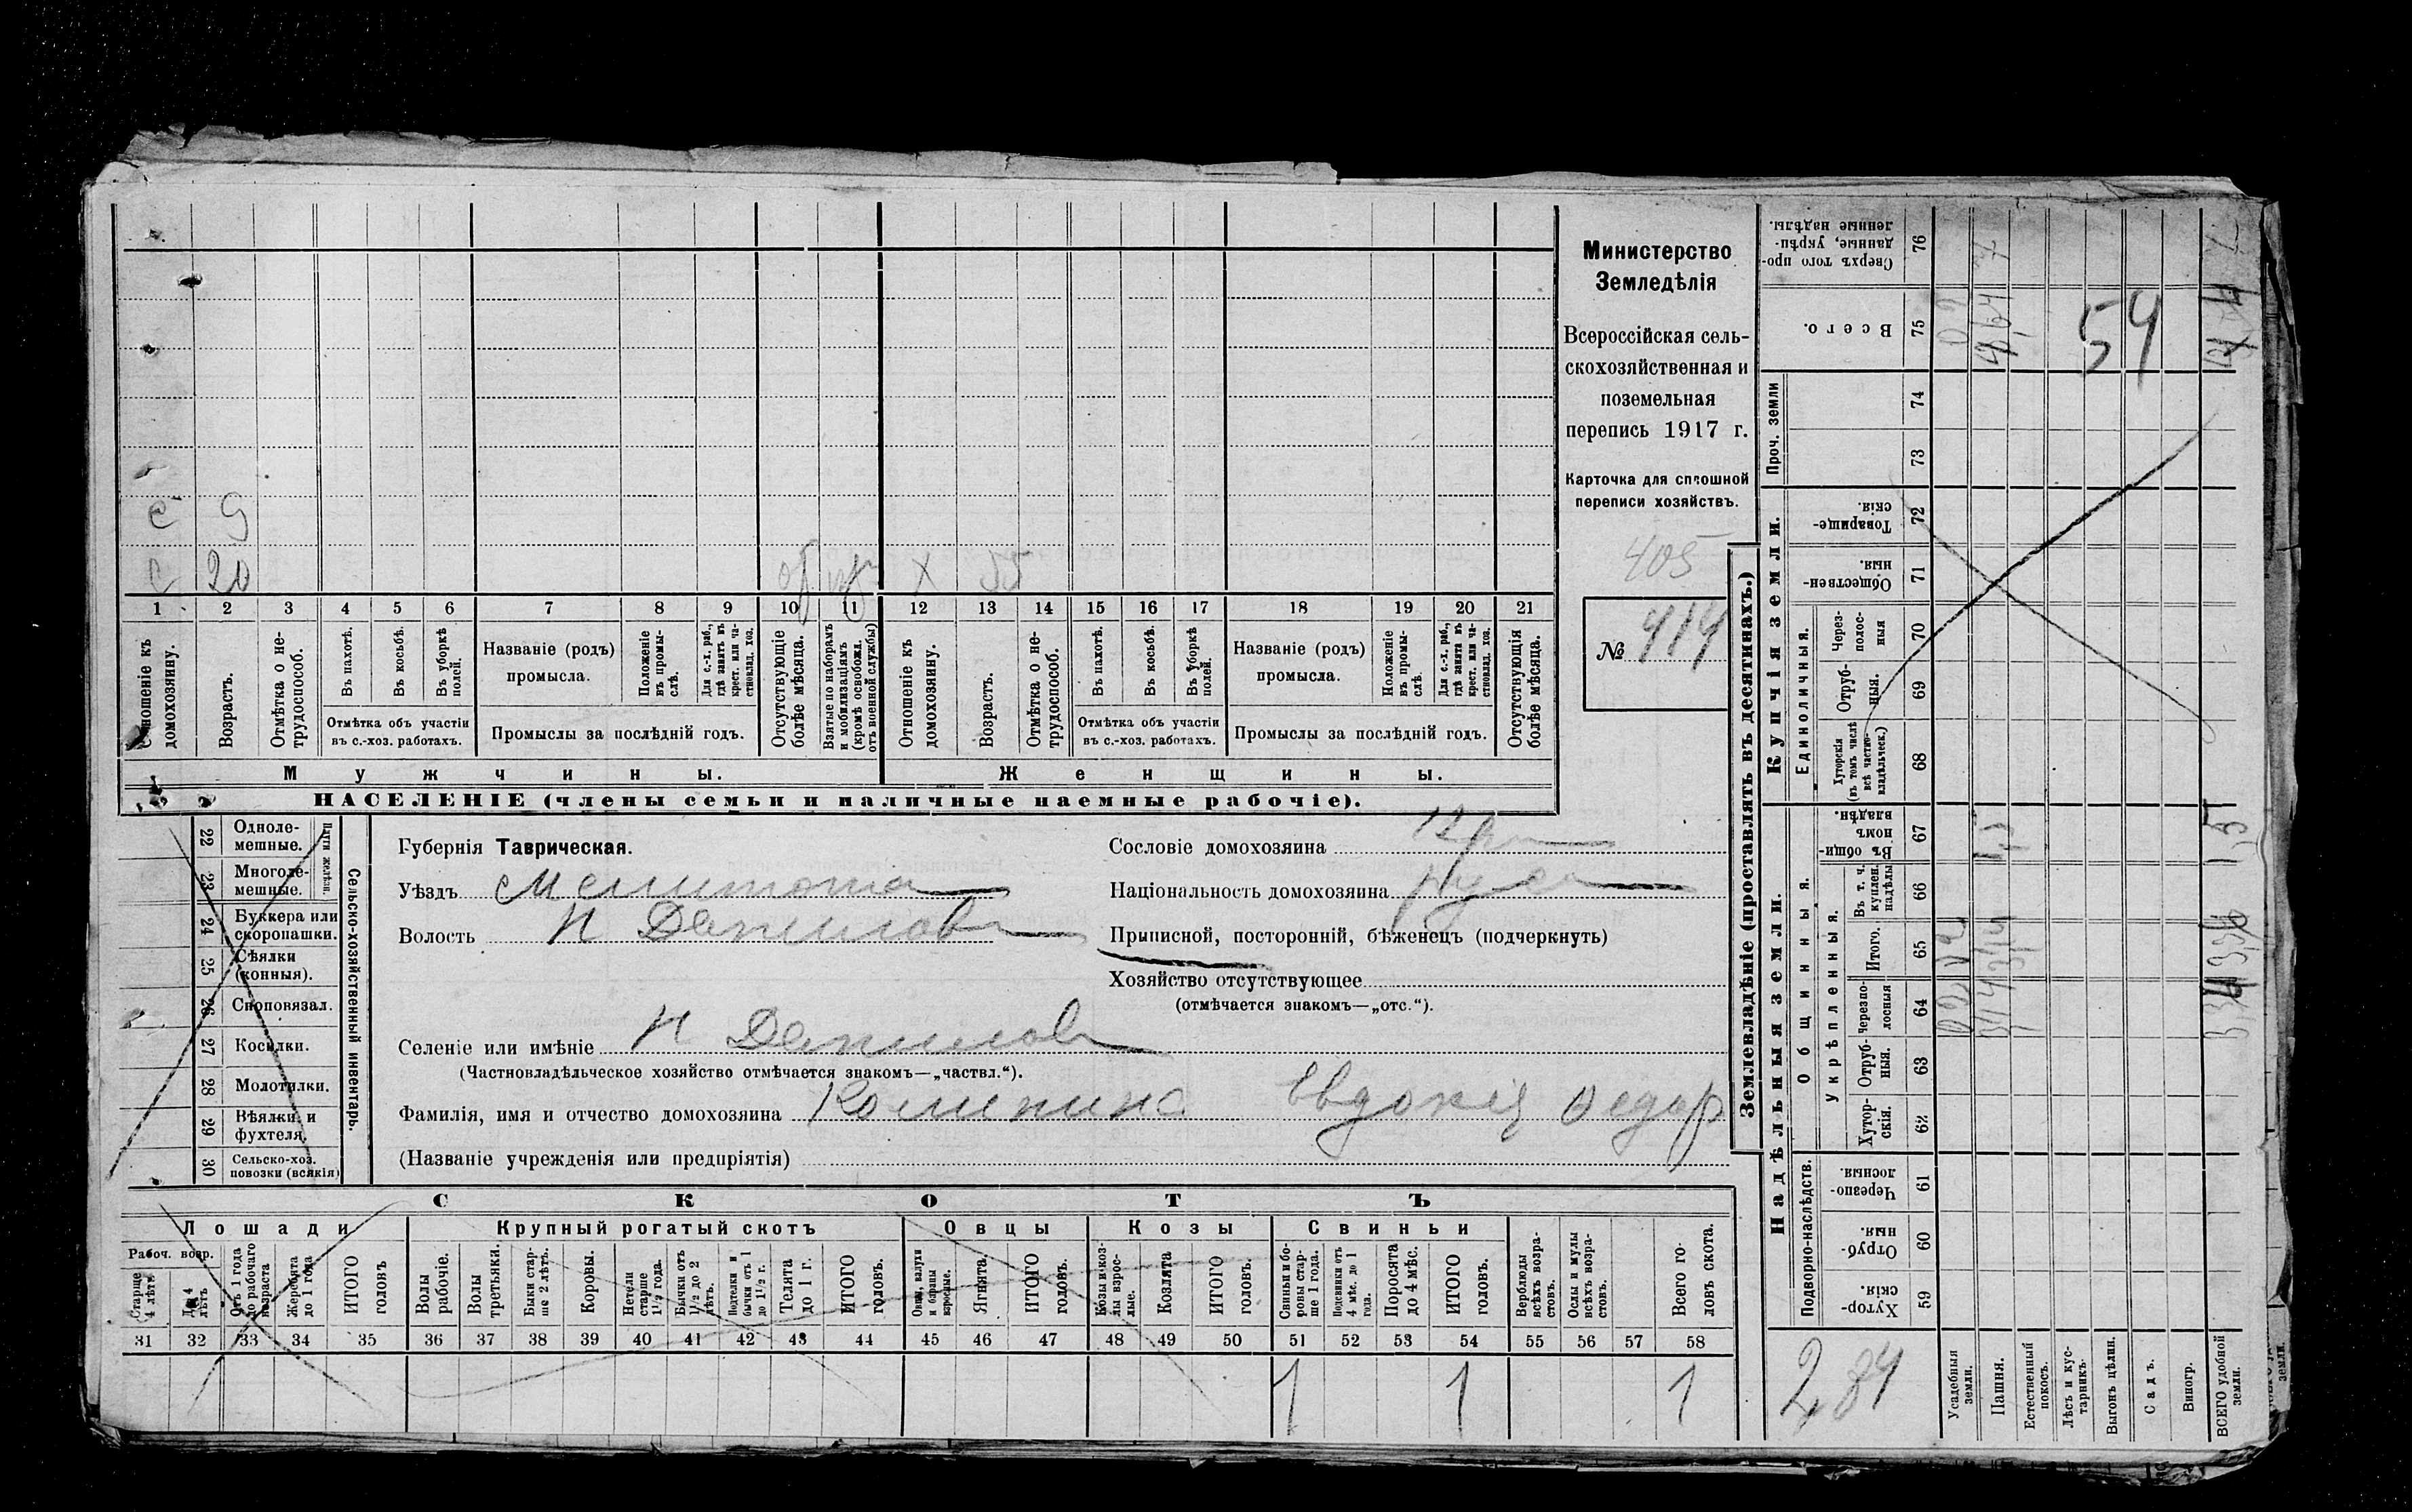 с 9
с 20 х 55
1 2 3 4 5 6 7 8 9 10 11 12 13 14 15 16 17 18 19 20 21
Отношеніе къ домохозяину.
Возрастъ.
Отмѣтка о не-трудоспособ.
Въ пахотѣ.
Въ косьбѣ.
Въ уборкѣ полей.
Отмѣтка объ участіи
въ с.-хоз. работахъ.
Названіе (родъ)
промысла.
Положеніе въ промы-слѣ.
Для с.-х. раб., гдѣ занятъ въ крест. или ча-стновлад. хоз.
Промыслы за послѣдній годъ.
Отсутствующіе болѣе мѣсяца.
Взятые по наборамъ и мобилизаціямъ (кромѣ освобожд. отъ военной службы)
Отношеніе къ домохозяину.
Возрастъ.
Отмѣтка о не-трудоспособ.
Въ пахотѣ.
Въ косьбѣ.
Въ уборкѣ полей.
Отмѣтка объ участіи
въ с.-хоз. работахъ.
Названіе (родъ)
промысла.
Положеніе въ промы-слѣ.
Для с.-х. раб., гдѣ занята въ крест. или ча-стновлад. хоз.
Промыслы за послѣдній годъ.
Отсутствующія болѣе мѣсяца.
Мужчины.
Женщины.
НАСЕЛЕНІЕ (члены семьи и наличные наемные рабочіе).
Министерство
Земледѣлія
Всероссійская сель-
скохозяйственная и
поземельная
перепись 1917 г.
Карточка для сплошной
переписи хозяйствъ.
405
№ 414
22 Одноле-мешные.
23 Многоле-мешные.
Плуги желѣзн.
24 Буккера или скоропашки.
25 Сѣялки (конныя).
26 Сноповязал.
27 Косилки.
28 Молотилки.
29 Вѣялки и фухтеля.
30 Сельско-хоз. повозки (всякія)
Сельско-хозяйственный инвентарь.
Губернія Таврическая.
Уѣздъ Мелитопол
Волость Н Данилов
Сословіе домохозяина кр
Національность домохозяина Русс
Приписной, посторонній, бѣженецъ (подчеркнуть)
Хозяйство отсутствующее
(отмѣчается знакомъ—„отс.“).
Селеніе или имѣніе Н Данилов
(Частновладѣльческое хозяйство отмѣчается знакомъ—„частвл.“).
Фамилія, имя и отчество домохозяина Евдокія Федор
(Названіе учрежденія или предпріятія)
СКОТЪ
Лошади
Крупный рогатый скотъ
Овцы
Козы
Свиньи
Рабоч. возр.
Старше 4 лѣтъ
До 4 лѣтъ
Отъ 1 года до рабочаго возраста
Жеребята до 1 года
ИТОГО головъ
Волы рабочіе.
Волы третьяки.
Быки стар-ше 2 лѣтъ.
Коровы.
Нетели старше 1½ года.
Бычки отъ 1½ до 2 лѣтъ.
Подтелки и бычки отъ 1 до 1½ г.
Телята до 1 г.
ИТОГО головъ.
Овцы, валухи и бараны взрослые.
Ягнята.
ИТОГО головъ.
Козы и коз-лы взрос-лые.
Козлята
ИТОГО головъ.
Свиньи и бо-ровы стар-ше 1 года.
Подсвинки отъ 4 мѣс. до 1 года.
Поросята до 4 мѣс.
ИТОГО головъ.
Верблюды всѣхъ возра-стовъ.
Ослы и мулы всѣхъ возра-стовъ.
Всего го-ловъ скота.
31 32 33 34 35 36 37 38 39 40 41 42 43 44 45 46 47 48 49 50 51 52 53 54 55 56 57 58
1 1 1
Землевладѣніе (проставлять въ десятинахъ.)
Купчія земли.
Надѣльныя земли.
Сверхъ того про-данные, укрѣп-ленные надѣлы. 76
Всего. 75
54
Проч. земли 74 73
Товарище-скія. 72
Обществен-ныя. 71
Единоличныя.
Через-полос-ныя 70
Отруб-ныя. 69
Хуторскія (въ томъ числѣ всѣ частно-владѣльческ.) 68
Общинныя.
Въ общи-номъ владѣн. 67
1,5
1,5
Укрѣпленныя.
Въ т. ч. куплен. надѣлы 66
Итого. 65
Черезпо-лосныя 64
Отруб-ныя. 63
Хутор-скія. 62
Подворно-наслѣдств.
Черезпо-лосныя. 61
Отруб-ныя. 60
Хутор-скія. 59
284
Усадебныя земли.
Пашня.
Естественный покосъ.
Лѣсъ и кус-тарникъ.
Выгонъ цѣлин.
Садъ.
Виногр.
ВСЕГО удобной земли.